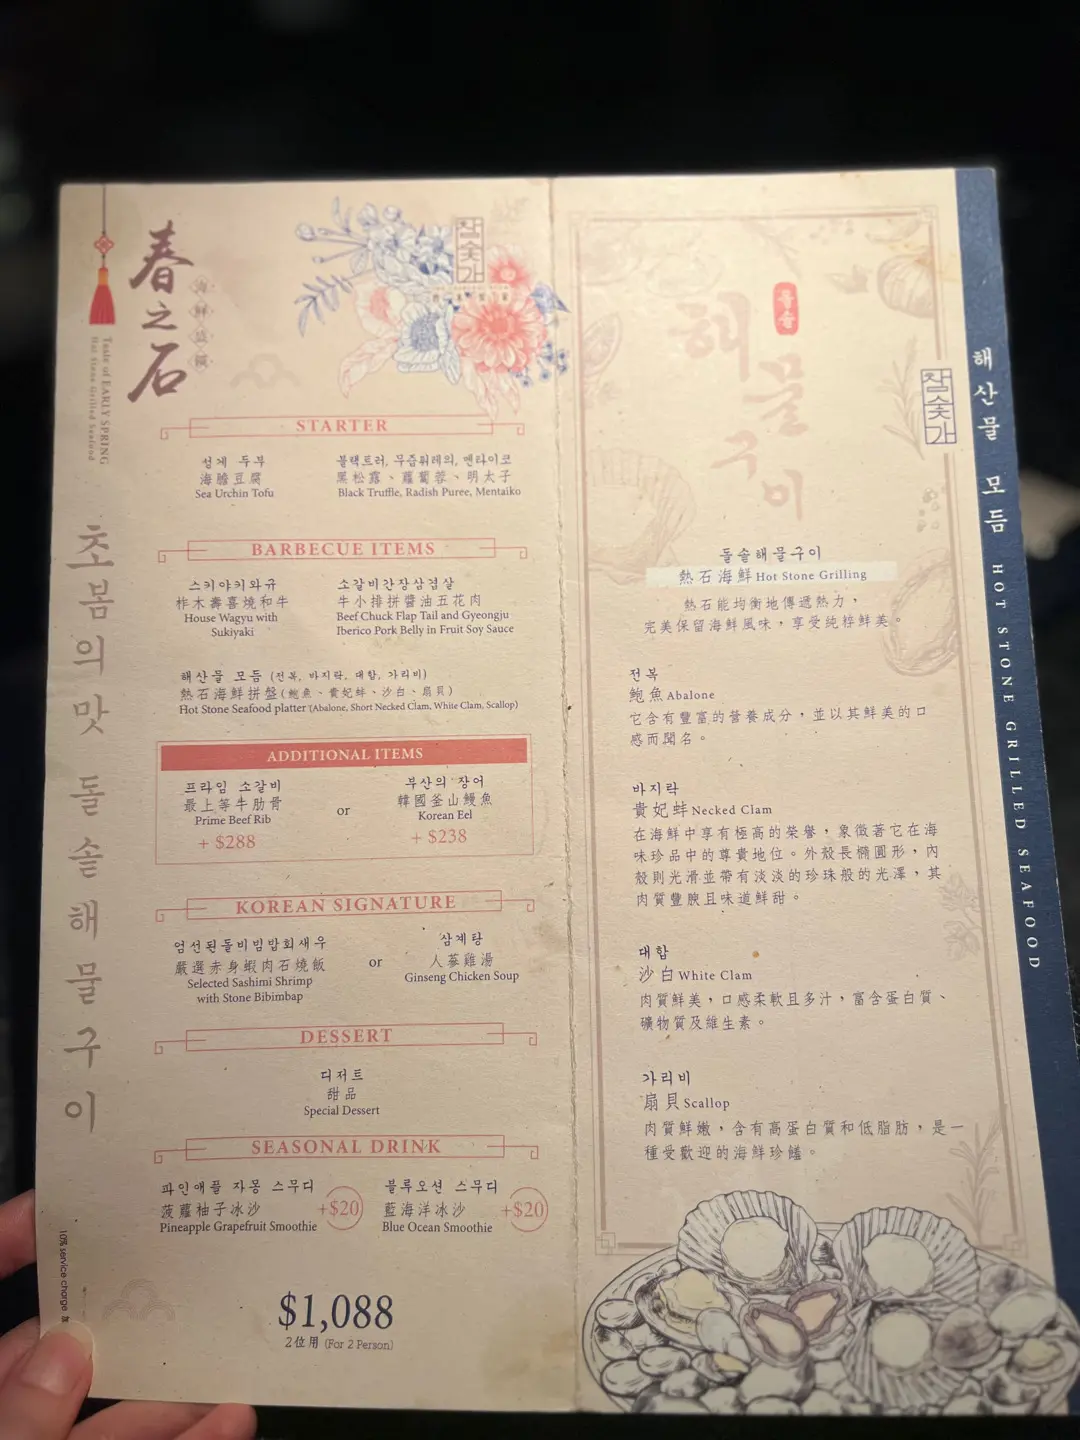 春之石
海鮮盛饌
Taste of EARLY SPRING
Hot Stone Grilled Seafood
초봄의맛 돌솥해물구이
참숯가
STARTER
성게 두부
海膽豆腐
Sea Urchin Tofu
블랙트러, 무즙퓌레의, 멘타이코
黑松露、蘿蔔蓉、明太子
Black Truffle, Radish Puree, Mentaiko
BARBECUE ITEMS
스키야키와규
柞木壽喜燒和牛
House Wagyu with
Sukiyaki
소갈비간장삼겹살
牛小排拼醬油五花肉
Beef Chuck Flap Tail and Gyeongju
Iberico Pork Belly in Fruit Soy Sauce
해산물 모듬 (전복, 바지락, 대합, 가리비)
熱石海鮮拼盤(鮑魚、貴妃蚌、沙白、扇貝)
Hot Stone Seafood platter (Abalone, Short Necked Clam, White Clam, Scallop)
ADDITIONAL ITEMS
프라임 소갈비
最上等牛肋骨
Prime Beef Rib
+ $288
or
부산의 장어
韓國釜山鰻魚
Korean Eel
+ $238
KOREAN SIGNATURE
엄선된돌비빔밥회새우
嚴選赤身蝦肉石燒飯
Selected Sashimi Shrimp
with Stone Bibimbap
or
삼계탕
人蔘雞湯
Ginseng Chicken Soup
DESSERT
디저트
甜品
Special Dessert
SEASONAL DRINK
파인애플 자몽 스무디
菠蘿柚子冰沙
Pineapple Grapefruit Smoothie
+$20
블루오션 스무디
藍海洋冰沙
Blue Ocean Smoothie
+$20
$1,088
2位用 (For 2 Person)
10% service charge
돌솥
해물구이
참숯가
돌솥해물구이
熱石海鮮 Hot Stone Grilling
熱石能均衡地傳遞熱力，
完美保留海鮮風味，享受純粹鮮美。
전복
鮑魚 Abalone
它含有豐富的營養成分，並以其鮮美的口
感而聞名。
바지락
貴妃蚌 Necked Clam
在海鮮中享有極高的榮譽，象徵著它在海
味珍品中的尊貴地位。外殼長橢圓形，內
殼則光滑並帶有淡淡的珍珠般的光澤，其
肉質豐腴且味道鮮甜。
대합
沙白 White Clam
肉質鮮美，口感柔軟且多汁，富含蛋白質、
礦物質及維生素。
가리비
扇貝 Scallop
肉質鮮嫩，含有高蛋白質和低脂肪，是一
種受歡迎的海鮮珍饈。
해산물 모듬 HOT STONE GRILLED SEAFOOD